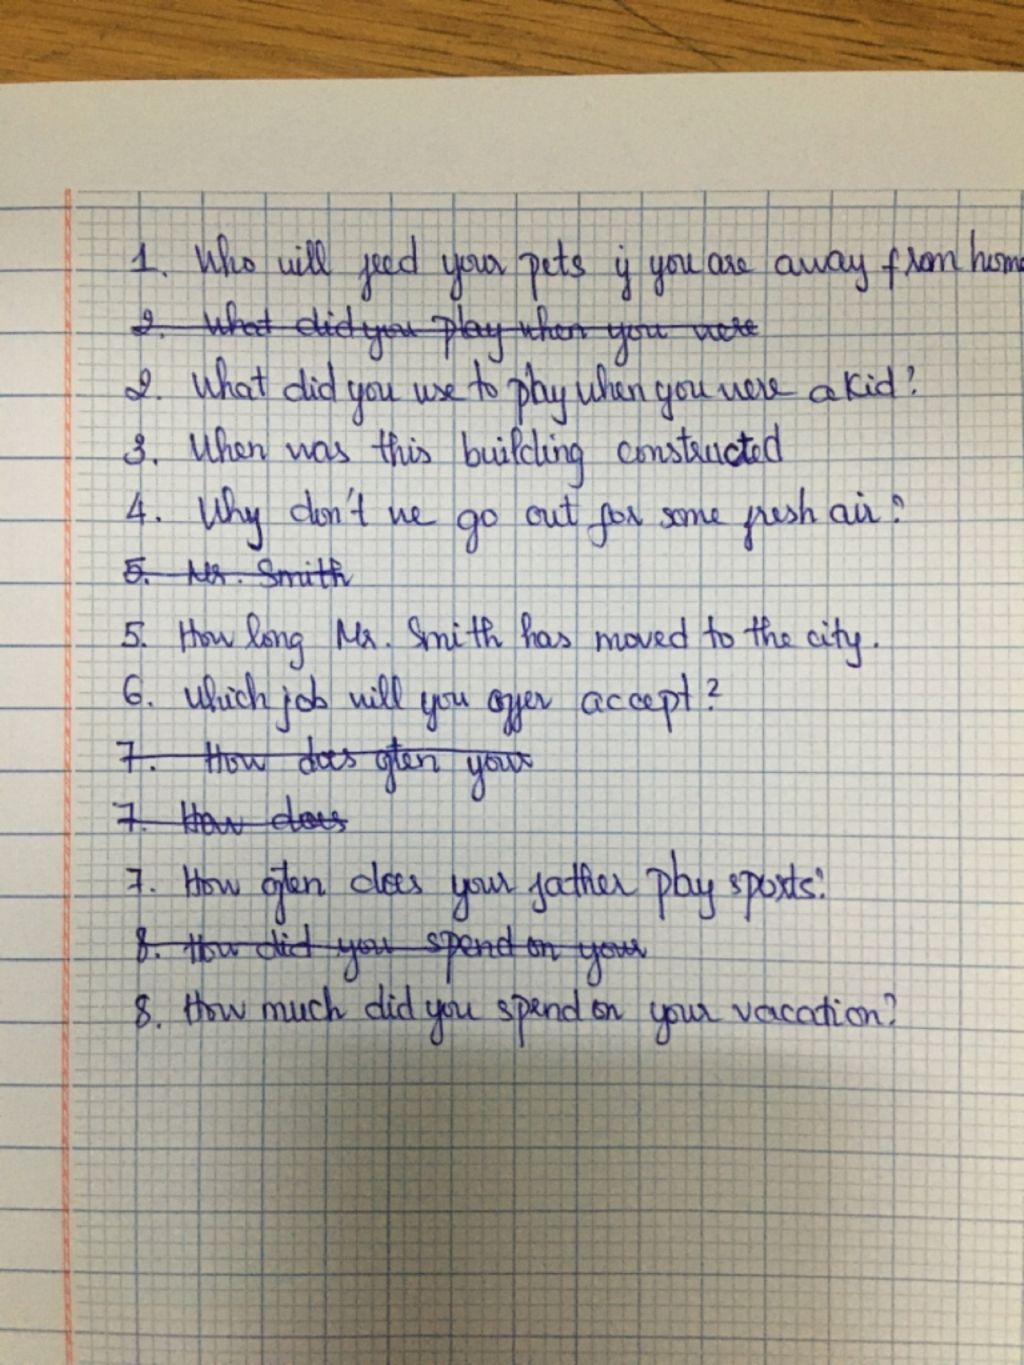 1. Who will feed your pets if you are away from home
2. What did you play when you were
2. What did you use to play when you were a kid?
3. When was this building constructed
4. Why don't we go out for some fresh air?
5. Mr. Smith
5. How long Mr. Smith has moved to the city.
6. Which job will you offer accept?
7. How does often your
7. How does
7. How often does your father play sports?
8. How did you spend on your
8. How much did you spend on your vacation?